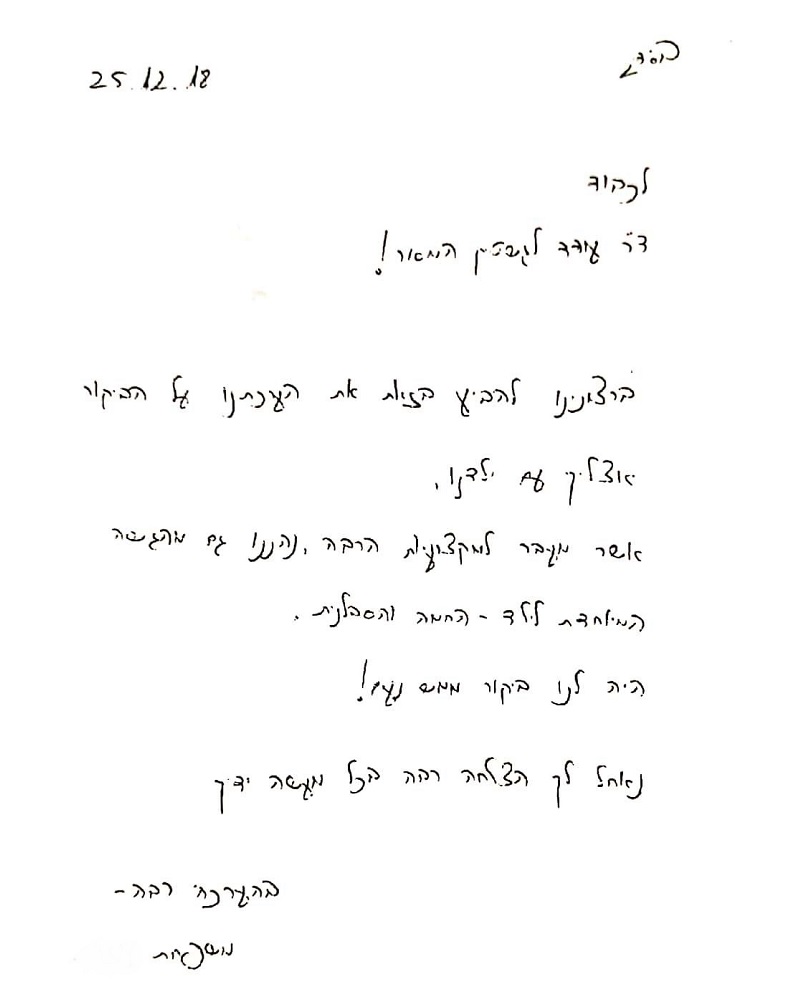 בס"ד
25.12.18
לכבוד
ד"ר עודד המאור!
ברצונינו להביע בזאת את הערכתנו על הביקור
אצליך עם ילדנו,
אשר מעבר למקצועיות הרבה, נהננו גם מהגישה
המיוחדת לילד - החמה והסבלנית.
היה לנו ביקור ממש נעים!
נאחל לך הצלחה רבה בכל מעשה ידיך
בהערכה רבה-
משפחת